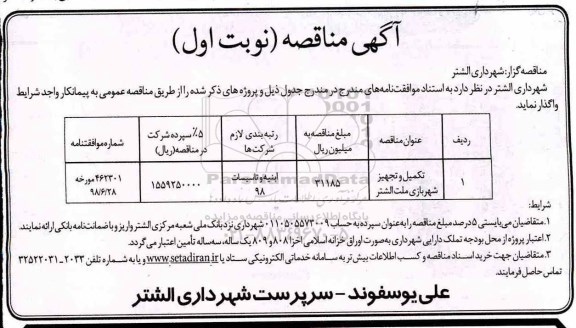 آگهی مناقصه (نوبت اول)
مناقصه گزار: شهرداری الشتر
شهرداری الشتر در نظر دارد به استناد موافقت‌نامه‌های مندرج در مندرج جدول ذیل و پروژه های ذکر شده را از طریق مناقصه عمومی به پیمانکار واجد شرایط
واگذار نماید.
ردیف | عنوان مناقصه | مبلغ مناقصه به میلیون ریال | رتبه بندی لازم شرکت ها | ۵٪ سپرده شرکت در مناقصه (ریال) | شماره موافقتنامه
۱ | تکمیل و تجهیز شهربازی ملت الشتر | ۳۱۱۸۵ | ابنیه و تاسیسات ۹۸ | ۱۵۵۹۲۵۰۰۰۰ | ۴۶۲۳۰۱ مورخه ۹۸/۶/۲۸
شرایط:
۱. متقاضیان می‌بایستی ۵ درصد مبلغ مناقصه را به عنوان سپرده به حساب ۰۱۱۰۵۰۵۵۷۳۰۰۹ شهرداری نزد بانک ملی شعبه مرکزی الشتر واریز و یا ضمانت‌نامه بانکی ارائه نمایند.
۲. اعتبار پروژه از محل بودجه تملک دارایی شهرداری به صورت اوراق خزانه اسلامی اخزا ۸۰۸ و ۸۰۹ یک ساله، سه ساله تأمین اعتبار می گردد.
۳. متقاضیان جهت خرید اسناد مناقصه و کسب اطلاعات بیش تر به سامانه خدماتی الکترونیکی ستاد یا www.setadiran.ir و یا به شماره تلفن ۲۰۳۳-۳۲۵۲۲۰۳۱
تماس حاصل فرمایند.
علی یوسفوند - سرپرست شهرداری الشتر
ParsNamadData
پایگاه اطلاع رسانی مناقصه و مزایده